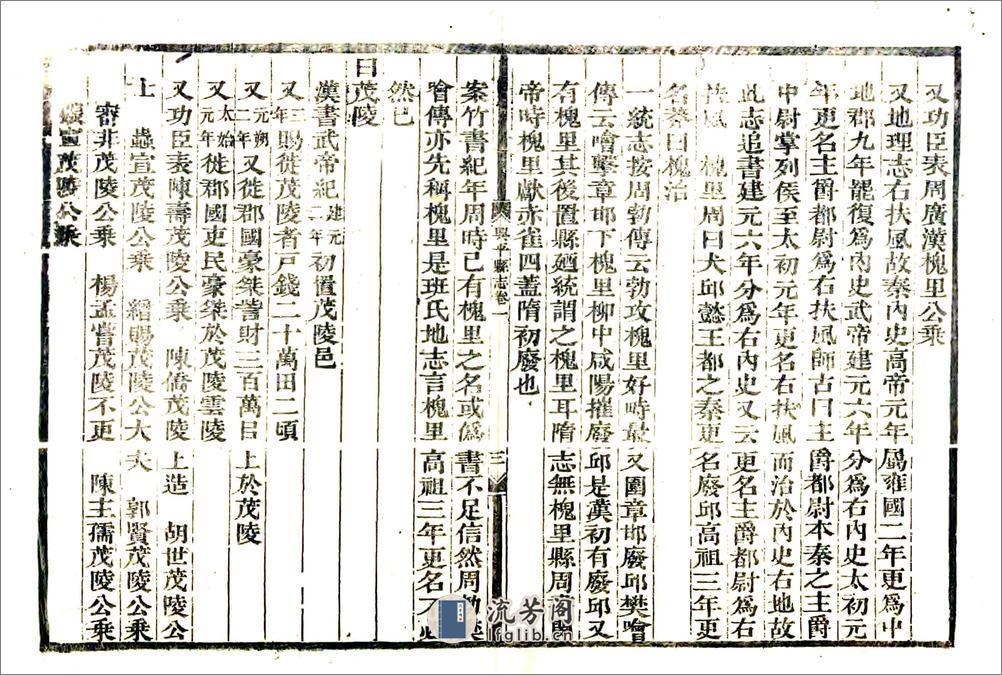 又功臣表周廣漢槐里公乘
又地理志右扶風故秦內史高帝元年屬雍國二年更爲中
地郡九年罷復爲內史武帝建元六年分爲右內史太初元
年更名主爵都尉爲右扶風師古曰主爵都尉本秦之主爵
中尉掌列侯至太初元年更名右扶風而治於內史右地故
此志追書建元六年分爲右內史又云更名主爵都尉爲右
扶風 槐里周曰犬邱懿王都之秦更名廢邱高祖三年更
名莽曰槐治
一統志按周勃傳云勃攻槐里好畤最又圍章邯廢邱樊噲
傳云噲擊章邯下槐里柳中咸陽摧廢邱是漢初有廢邱又
有槐里其後置縣廼統謂之槐里耳隋志無槐里縣周
帝時槐里獻赤雀四蓋隋初廢也
興平縣志卷一
三
案竹書紀年周時已有槐里之名或僞書不足信然周勃樊
噲傳亦先稱槐里是班氏地志言槐里高祖三年更名不必
然也
曰茂陵
漢書武帝紀建元二年初置茂陵邑
又三年賜徙茂陵者戶錢二十萬田二頃
又元朔二年又徙郡國豪桀訾財三百萬目上於茂陵
又太始元年徙郡國吏民豪桀於茂陵雲陵
又功臣表陳壽茂陵公乘 陳僑茂陵上造 胡世茂陵公
士 蟲宣茂陵公乘 繒賜茂陵公大夫 郭賢茂陵公乘
審非茂陵公乘 楊孟嘗茂陵不更 陳主孺茂陵公乘
宣茂陵公乘
流芳阁
lfglib.cn